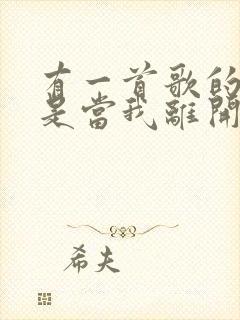 有一首歌的
是當我離開
希夫